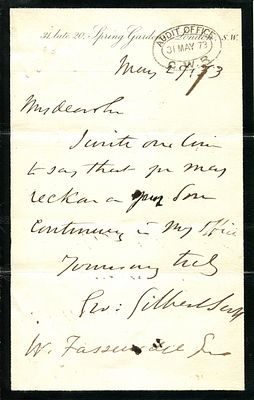 31, late 20, Spring Gardens, London S.W.
AUDIT OFFICE
31 MAY 73
G.W.R.
May 29/73
My dear Sir
I write one line
to say that you may
reckon on your Son
continuing in my office
Yours very truly
Geo: Gilbert Scott
W.